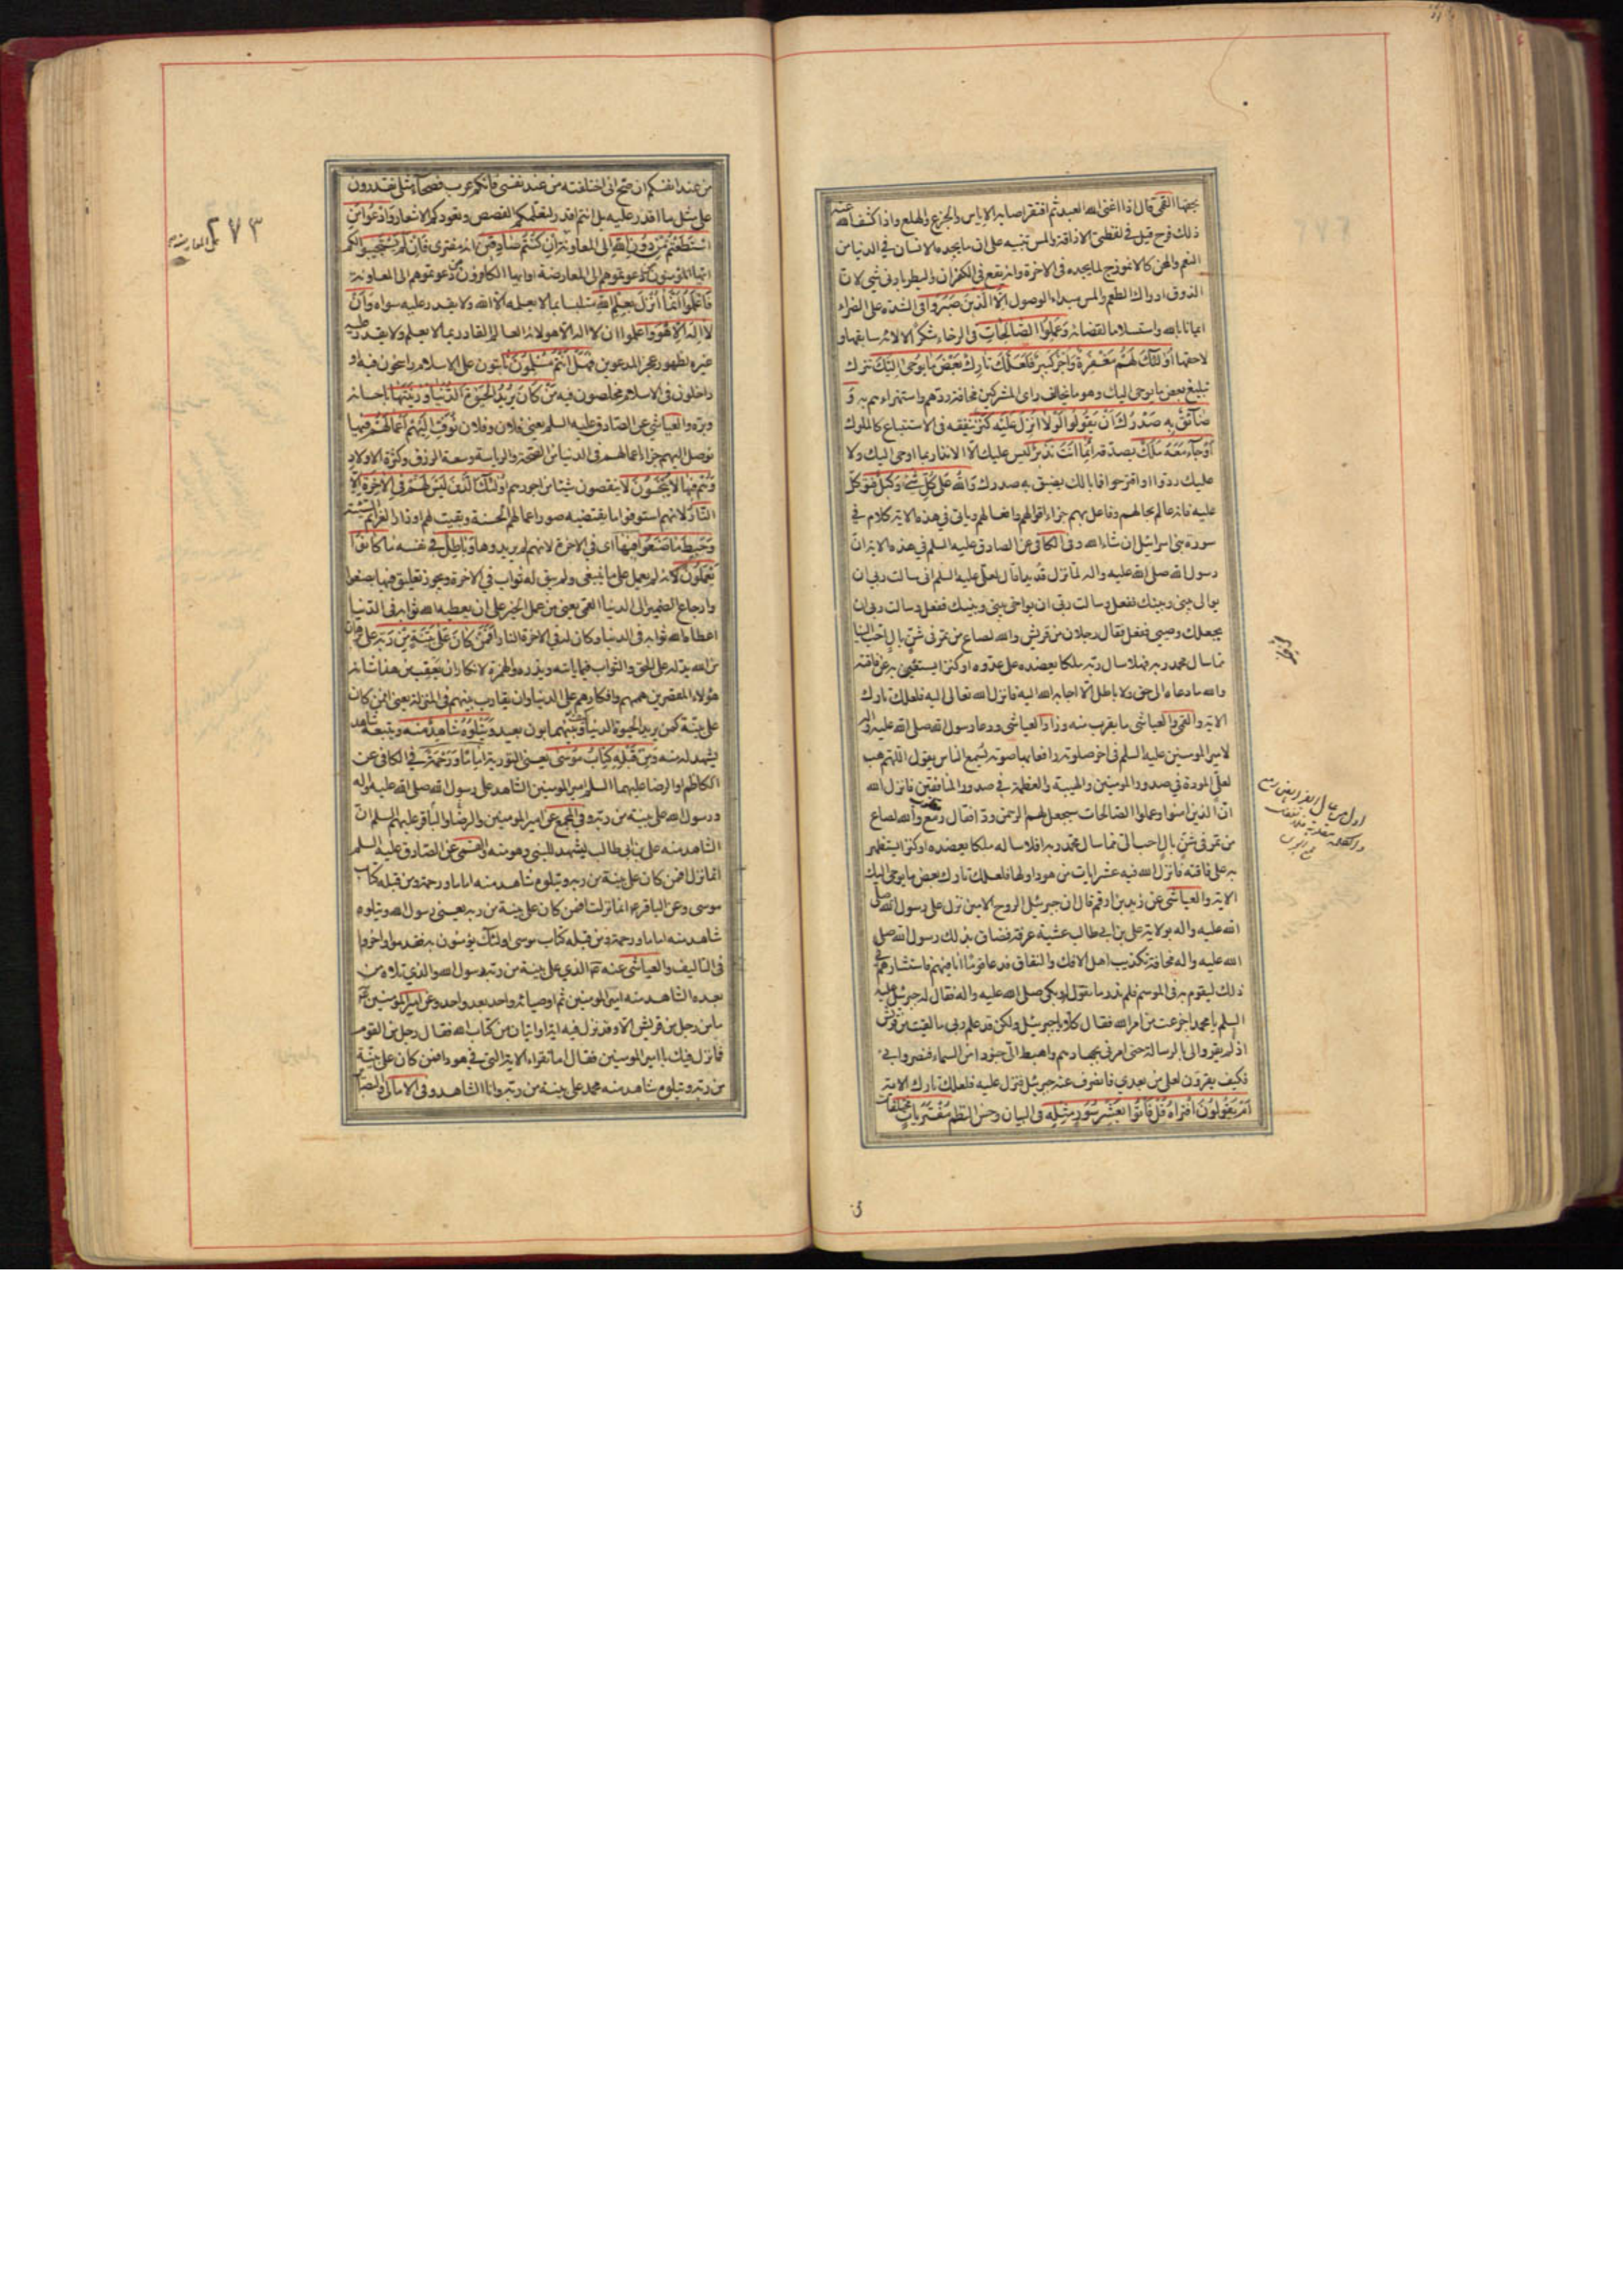 بجهنا القمي قال اذا اغنى الله العبد ثم افتقر اصابه الاياس والجزع والهلع واذا كشف الله عنه
ذلك فرح قيل في لفظتي الاذاقة والمس تنبيه على ان ما يجده الانسان في الدنيا من
النعم والمحن كالانموذج لما يجده في الاخرة وانه يقع في الكفران والبطر بادنى شي لان
الذوق ادراك الطعم والمس مبداء الوصول اِلَّا الَّذينَ صَبَرُوا في الشدة على الضراء
ايمانا بالله واستسلاما لقضائه وَعَمِلُوا الصّالِحاتِ في الرخاء شكرا لالائه سابقها و
لاحقها اُولئِكَ لَهُمْ مَغْفِرَةٌ وَاَجْرٌ كَبيرٌ فَلَعَلَّكَ تارِكٌ بَعْضَ ما يُوحى اِلَيْكَ تترك
تبليغ بعض ما يوحى اليك وهو ما يخالف راى المشركين مخافة ردهم واستهزاءهم به وَ
ضائِقٌ بِه صَدْرُكَ اَنْ يَقُولُوا لَوْلا اُنْزِلَ عَلَيْهِ كَنْزٌ ينفقه في الاستتباع كالملوك
اَوْ جآءَ مَعَهُ مَلَكٌ يصدقه اِنَّما اَنْتَ نَذيرٌ ليس عليك الا الانذار بما اوحى اليك ولا
عليك ردوا او اقترحوا فما بالك يضيق به صدرك وَاللهُ عَلى كُلِّ شَيْءٍ وَكيلٌ فتوكل
عليه فانه عالم بحالهم وفاعل بهم جزاء اقوالهم وافعالهم وياتي في هذه الاية كلام في
سورة بني اسرائيل ان شاء الله وفي الكافي عن الصادق عليه السلم في هذه الاية ان
رسول الله صلى الله عليه واله لما نزل قديد قال لعلي عليه السلم اني سالت ربي ان
يوالي بيني وبينك ففعل وسالت ربي ان يواخي بيني وبينك ففعل وسالت ربي ان
يجعلك وصيي ففعل فقال رجلان من قريش والله لصاع من تمر في شن بال احب الينا
مما سال محمد ربه فهلا سال ربه ملكا يعضده على عدوه او كنزا يستغني به عن فاقته
والله ما دعاه الى حق ولا باطل الا اجابه الله اليه فانزل الله تعالى اليه فلعلك تارك
الاية والقمي والعياشي ما يقرب منه وزاد العياشي ودعا رسول الله صلى الله عليه واله
لامير المومنين عليه السلم في اخر صلوته رافعا بها صوته يسمع الناس يقول اللهم هب
لعلي المودة في صدور المومنين والهيبة والعظمة في صدور المنافقين فانزل الله
ان الذين امنوا وعملوا الصالحات سيجعل لهم الرحمن ودا فقال رمع والله لصاع
من تمر في شن بال احب الي مما سال محمد ربه افلا ساله ملكا يعضده او كنزا يستظهر
به على فاقته فانزل الله فيه عشر ايات من هود اولها فلعلك تارك بعض ما يوحى اليك
الاية والعياشي عن زيد بن ارقم قال ان جبرئيل الروح الامين نزل على رسول الله صلى
الله عليه واله بولاية علي بن ابي طالب عشية عرفة فضاق بذلك رسول الله صلى
الله عليه واله مخافة تكذيب اهل الافك والنفاق فدعا قوما انا فيهم فاستشارهم في
ذلك ليقوم به في الموسم فلم ندر ما نقول له وبكى صلى الله عليه واله فقال له جبرئيل عليه
السلم يا محمد اجزعت من امر الله فقال كلا يا جبرئيل ولكن قد علم ربي ما لقيت من قريش
اذ لم يقروا لي بالرسالة حتى امرني بجهادهم واهبط الي جنودا من السماء فنصروني
فكيف يقرون لعلي من بعدي فانصرف عنه جبرئيل فنزل عليه فلعلك تارك الاية
اَمْ يَقُولُونَ افْتَراهُ قُلْ فَأْتُوا بِعَشْرِ سُوَرٍ مِثْلِه في البيان وحسن النظم مُفْتَرَياتٍ مختلقات
من عند انفسكم ان صح اني اختلقته من عند نفسي فانكم عرب فصحاء مثلي تقدرون
على مثل ما اقدر عليه بل انتم اقدر لتعلمكم القصص وتعودكم الاشعار وَادْعُوا مَنِ
اسْتَطَعْتُمْ مِنْ دُونِ اللهِ الى المعاونة اِنْ كُنْتُمْ صادِقينَ انه مفترى فَاِنْ لَمْ يَسْتَجيبُوا لَكُمْ
ايها المؤمنون من دعوتموهم الى المعارضة او ايها الكافرون من دعوتموهم الى المعاونة
فَاعْلَمُوا اَنَّما اُنْزِلَ بِعِلْمِ اللهِ متلبسا بما لا يعلمه الا الله ولا يقدر عليه سواه وَاَنْ
لا اِلهَ اِلّا هُوَ واعلموا ان لا اله الا هو لانه العالم القادر بما لا يعلم ولا يقدر عليه
غيره لظهور عجز المدعوين فَهَلْ اَنْتُمْ مُسْلِمُونَ ثابتون على الاسلام راسخون فيه او
داخلون في الاسلام مخلصون فيه مَنْ كانَ يُريدُ الْحَيوةَ الدُّنْيا وَزينَتَها باحسانه
وبره والعياشي عن الصادق عليه السلم يعني فلان وفلان نُوَفِّ اِلَيْهِمْ اَعْمالَهُمْ فيها
نوصل اليهم جزاء اعمالهم في الدنيا من الصحة والرياسة وسعة الرزق وكثرة الاولاد
وَهُمْ فيها لا يُبْخَسُونَ لا ينقصون شيئا من اجورهم اُولئِكَ الَّذينَ لَيْسَ لَهُمْ فِي الْاخِرَةِ اِلَّا
النّارُ لانهم استوفوا ما يقتضيه صور اعمالهم الحسنة وبقيت لهم اوزار العزائم السيئة
وَحَبِطَ ما صَنَعُوا فيها اى في الاخرة لانهم لم يريدوها وَباطِلٌ في نفسه ما كانُوا
يَعْمَلُونَ لانه لم يعمل على ما ينبغي ولم يبق له ثواب في الاخرة ويجوز تعليق فيها بصنعوا
وارجاع الضمير الى الدنيا القمي يعني من عمل الخير على ان يعطيه الله ثوابه في الدنيا
اعطاه الله ثوابه في الدنيا وكان له في الاخرة النار اَفَمَنْ كانَ عَلى بَيِّنَةٍ مِنْ رَبِّه على برهان
من الله يدله على الحق والثواب فيما ياتيه ويذره والهمزة لانكار ان يعقب من هذا شانه
هؤلاء المقصرين هممهم وافكارهم على الدنيا وان يقارب بينهم في المنزلة يعني افمن كان
على بينة كمن يريد الحيوة الدنيا كيف وبينهما بون بعيد وَيَتْلُوهُ شاهِدٌ مِنْهُ ويتبعه شاهد
يشهد له منه وَمِنْ قَبْلِه كِتابُ مُوسى يعني التورية اِمامًا وَرَحْمَةً في الكافي عن
الكاظم او الرضا عليهما السلم امير المومنين الشاهد على رسول الله صلى الله عليه واله
ورسول الله على بينة من ربه وفي المجمع عن امير المومنين والرضا والباقر عليهم السلم ان
الشاهد منه علي بن ابي طالب يشهد للنبي وهو منه والقمي عن الصادق عليه السلم
انما نزل افمن كان على بينة من ربه ويتلوه شاهد منه اماما ورحمة ومن قبله كتاب
موسى وعن الباقر ع انما نزلت افمن كان على بينة من ربه يعني رسول الله ويتلوه
شاهد منه اماما ورحمة ومن قبله كتاب موسى اولئك يؤمنون به فقدموا واخروا
في التاليف والعياشي عنه ع الذي على بينة من ربه رسول الله والذي تلاه من
بعده الشاهد منه امير المومنين ثم اوصيائه واحد بعد واحد وعن امير المومنين ع
ما من رجل من قريش الا وقد نزل فيه اية او ايتان من كتاب الله فقال رجل من القوم
فما نزل فيك يا امير المومنين فقال اما تقراء الاية التي في هود افمن كان على بينة
من ربه ويتلوه شاهد منه محمد على بينة من ربه وانا الشاهد وفي الامالي والبصائر
٢٧٣